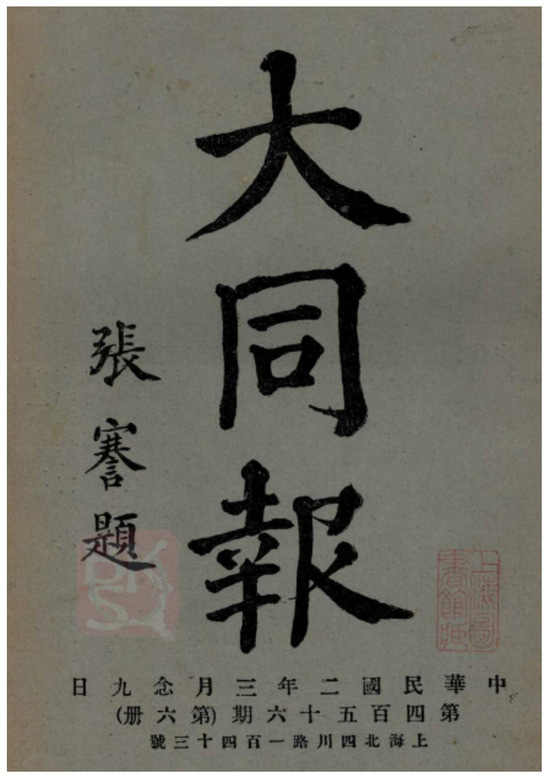 大同報
張謇題
上海圖
書館藏
中華民國二年三月念九日
第四百五十六期(第六册)
上海北四川路一百四十三號